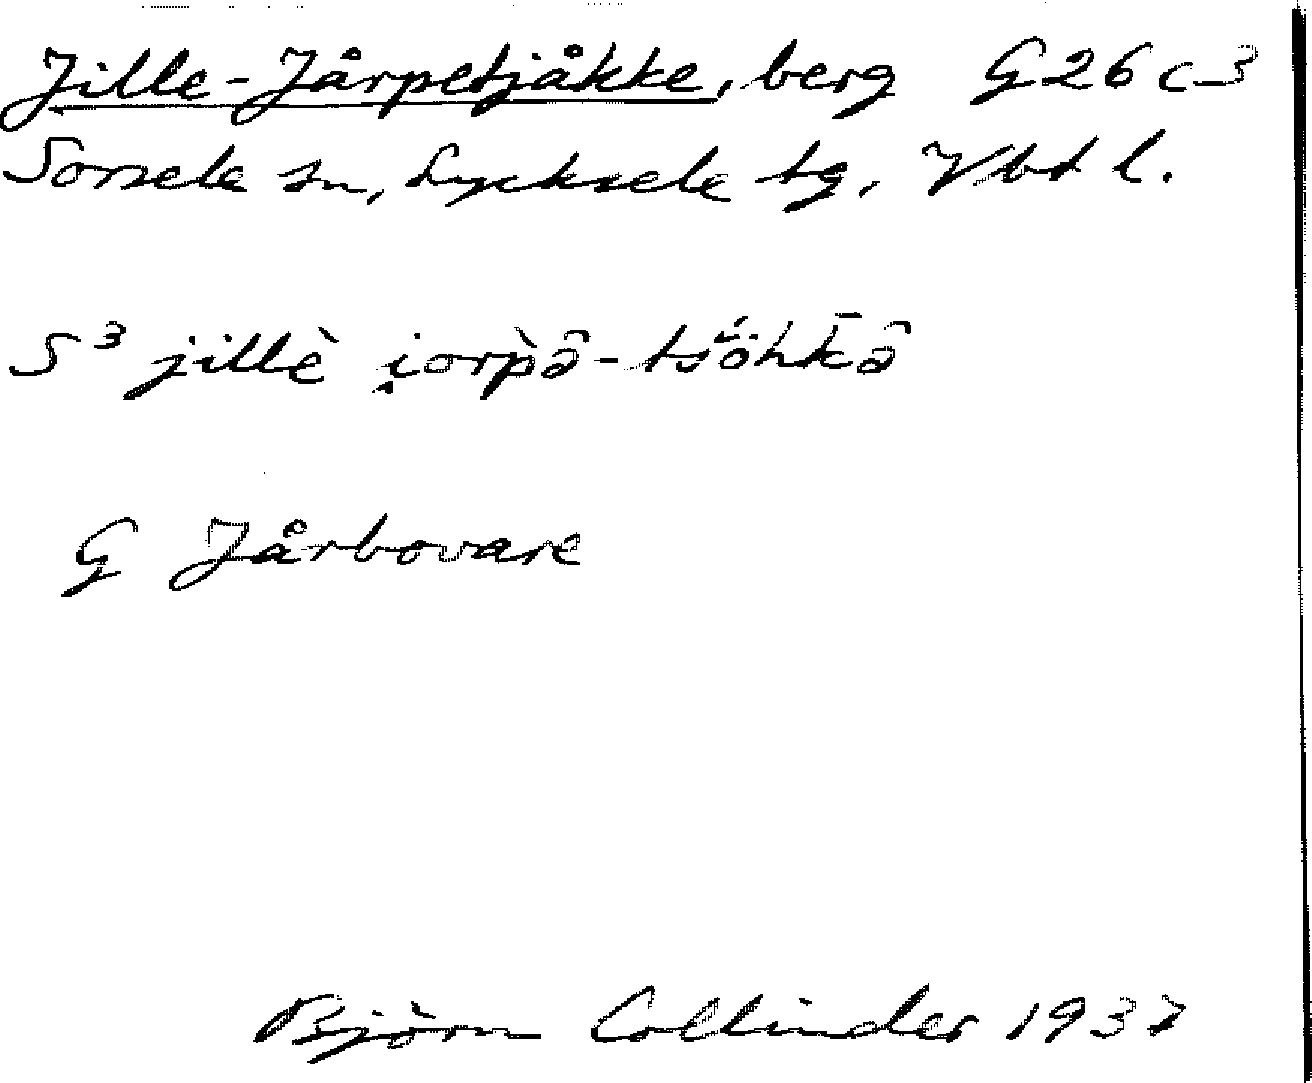 Jille-Jårpetjåkke, berg G26c3
Sorsele sn, Lycksele tg, Vbtl.
S³ jillè i̯orp̀ə̂-tsö́hk̄ə̂
G Jårbovare
Björn Collinder 1937